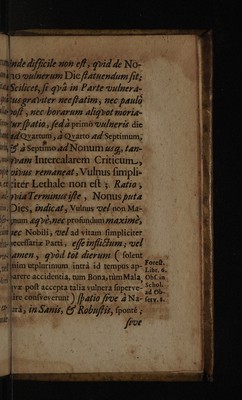 inde difficile non est, qvid de No-
no vulnerum Die statuendum sit;
Scilicet, si qvâ in Parte vulnera-
tus graviter nec statim, nec paulò
post, nec horarum aliqvot moria-
tur spatio, sed à primò vulneris die
ad Qvartum, à Qvarto ad Septimum,
& à Septimo ad Nonum usq, tan-
qvam Intercalarem Criticum,
vivus remaneat, Vulnus simpli-
citer Lethale non est; Ratio,
qvia Terminus iste, Nonus puta
Dies, indicat, Vulnus vel non Ma-
gnum æqvè, nec profundum maximè,
nec Nobili, vel ad vitam simpliciter
necessariæ Parti, esse inflictum; vel
tamen, qvòd tot dierum (solent
enim utplurimum intrà id tempus ap-
parere accidentia, tum Bona, tùm Mala
qvæ post accepta talia vulnera superve-
nire consveverunt) spatio sive à Na-
turâ, in Sanis, & Robustis, spontè;
sive
Forest.
Libr. 6.
Obs. in
Schol.
ad Ob-
serv. 8.